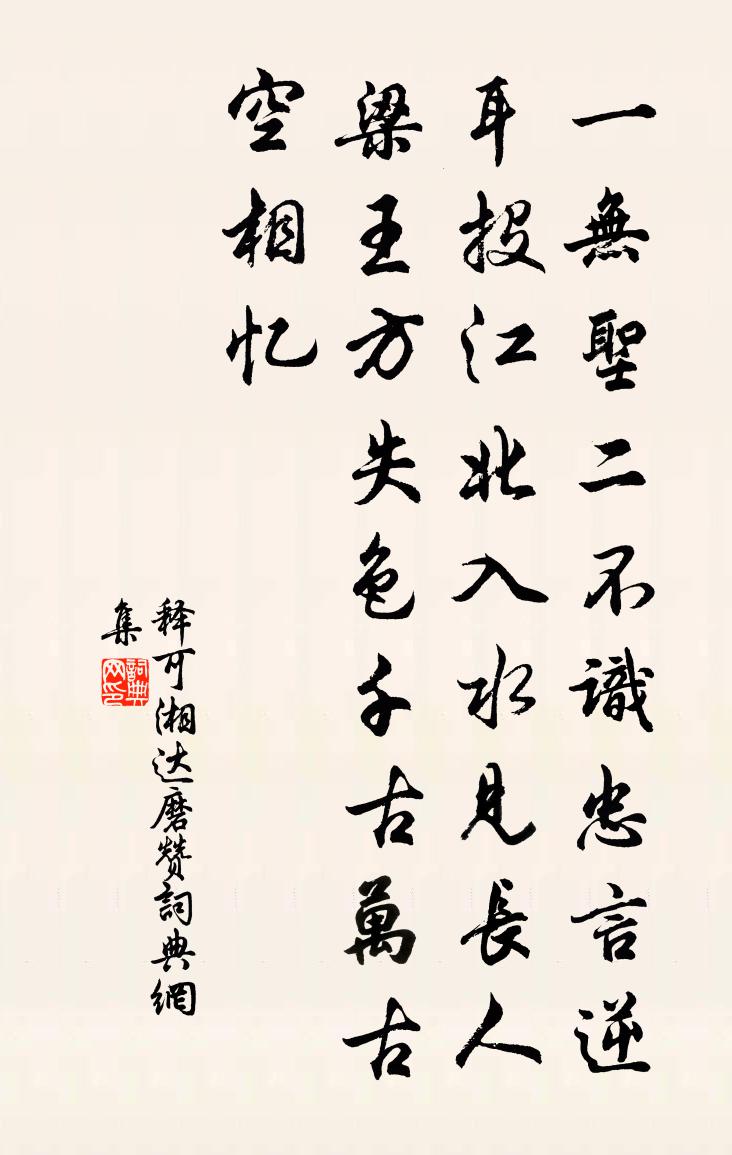 一無聖二不識忠言逆
耳投江北入水見長人
梁王方失色千古萬古
空相忆
释可湘达磨赞詞典網
集
詞典网印